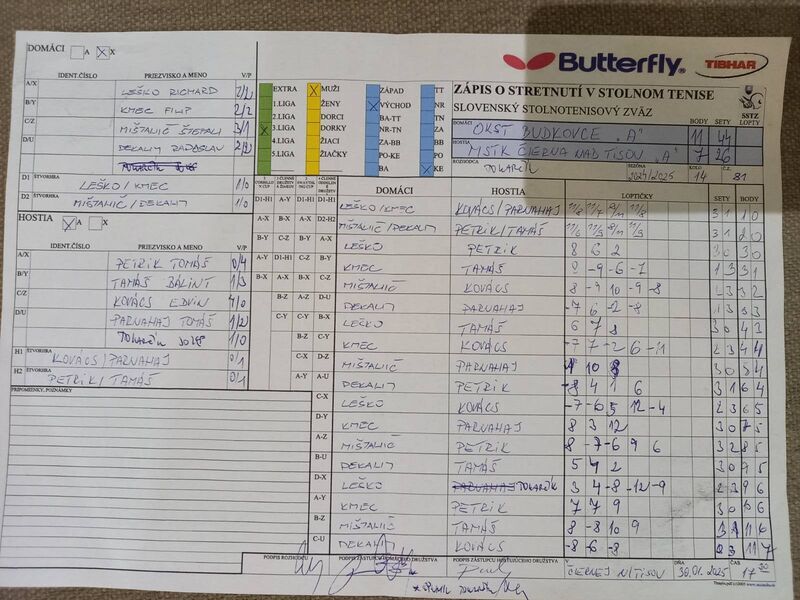 DOMÁCI A X
Butterfly
TIBHAR
IDENT.ČÍSLO PRIEZVISKO A MENO V/P
A/X LEŠKO RICHARD
B/Y KMEC FILIP 2/2
C/Z MIŠTALIČ ŠTEFAN 3/1
D/U DEKALIJ RADOSLAV
D1 ŠTVORHRA LEŠKO/KMEC 1/0
D2 ŠTVORHRA MIŠTALIČ/DEKALIJ 1/0
HOSTIA A X
IDENT.ČÍSLO PRIEZVISKO A MENO V/P
A/X PETRIK TOMÁŠ 0/4
B/Y TAMÁŠ BÁLINT 1/3
C/Z KOVÁCS EDVIN 4/0
D/U PARNAHAJ TOMÁŠ 1/2
TOKARČÍK JOZEF 1/0
H1 ŠTVORHRA KOVÁCS/PARNAHAJ 0/1
H2 ŠTVORHRA PETRIK/TAMÁŠ 0/1
PRIPOMIENKY, POZNÁMKY
EXTRA X MUŽI ZÁPAD TT
1.LIGA ŽENY X VÝCHOD NR
2.LIGA DORCI BA-TT TN
X 3.LIGA DORKY NR-TN ZA
4.LIGA ŽIACI ZA-BB BB
5.LIGA ŽIAČKY PO-KE PO
BA X KE
ZÁPIS O STRETNUTÍ V STOLNOM TENISE
SLOVENSKÝ STOLNOTENISOVÝ ZVÄZ
SSTZ
DOMÁCI BODY SETY LOPTY
OKST BUDKOVCE "A" 11 44
HOSTIA MSTK ČIERNA NAD TISOU "A" 7 26
ROZHODCA TOKARČÍK SEZÓNA 2024/2025 KOLO 14 Č.S. 81
DOMÁCI HOSTIA LOPTIČKY SETY BODY
D1-H1 LEŠKO/KMEC KOVÁCS/PARNAHAJ 3 1 1 0
D2-H2 MIŠTALIČ/DEKALIJ PETRIK/TAMÁŠ 3 1 2 0
LEŠKO PETRIK 8 6 2 3 0 3 0
KMEC TAMÁŠ 8 -9 -6 -7 1 3 3 1
MIŠTALIČ KOVÁCS 8 -9 10 -9 -8 2 3 3 2
DEKALIJ PARNAHAJ -7 6 -2 -8 1 3 3 3
LEŠKO TAMÁŠ 6 7 8 3 0 4 3
KMEC KOVÁCS 7 -7 -2 6 -11 2 3 4 4
MIŠTALIČ PARNAHAJ 10 8 3 0 5 4
DEKALIJ PETRIK -8 4 1 6 3 1 6 4
C-X LEŠKO KOVÁCS -7 -6 5 12 -4 2 3 6 5
D-Y KMEC PARNAHAJ 8 3 12 3 0 7 5
A-Z MIŠTALIČ PETRIK 8 -7 -6 9 6 3 2 8 5
B-U DEKALIJ TAMÁŠ 5 4 2 3 0 9 5
D-X LEŠKO TOKARČÍK 3 4 -8 -12 -9 2 3 9 6
A-Y KMEC PETRIK 7 7 9
B-Z MIŠTALIČ TAMÁŠ 8 -8 10 9 3 1 11 6
C-U DEKALIJ KOVÁCS -8 -6 -8 0 3 11 7
PODPIS ROZHODCU PODPIS ZÁSTUPCU DOMÁCEHO DRUŽSTVA PODPIS ZÁSTUPCU HOSŤUJÚCEHO DRUŽSTVA V ČIERNEJ N/TISOU DŇA 30.01.2025 ČAS 17 30